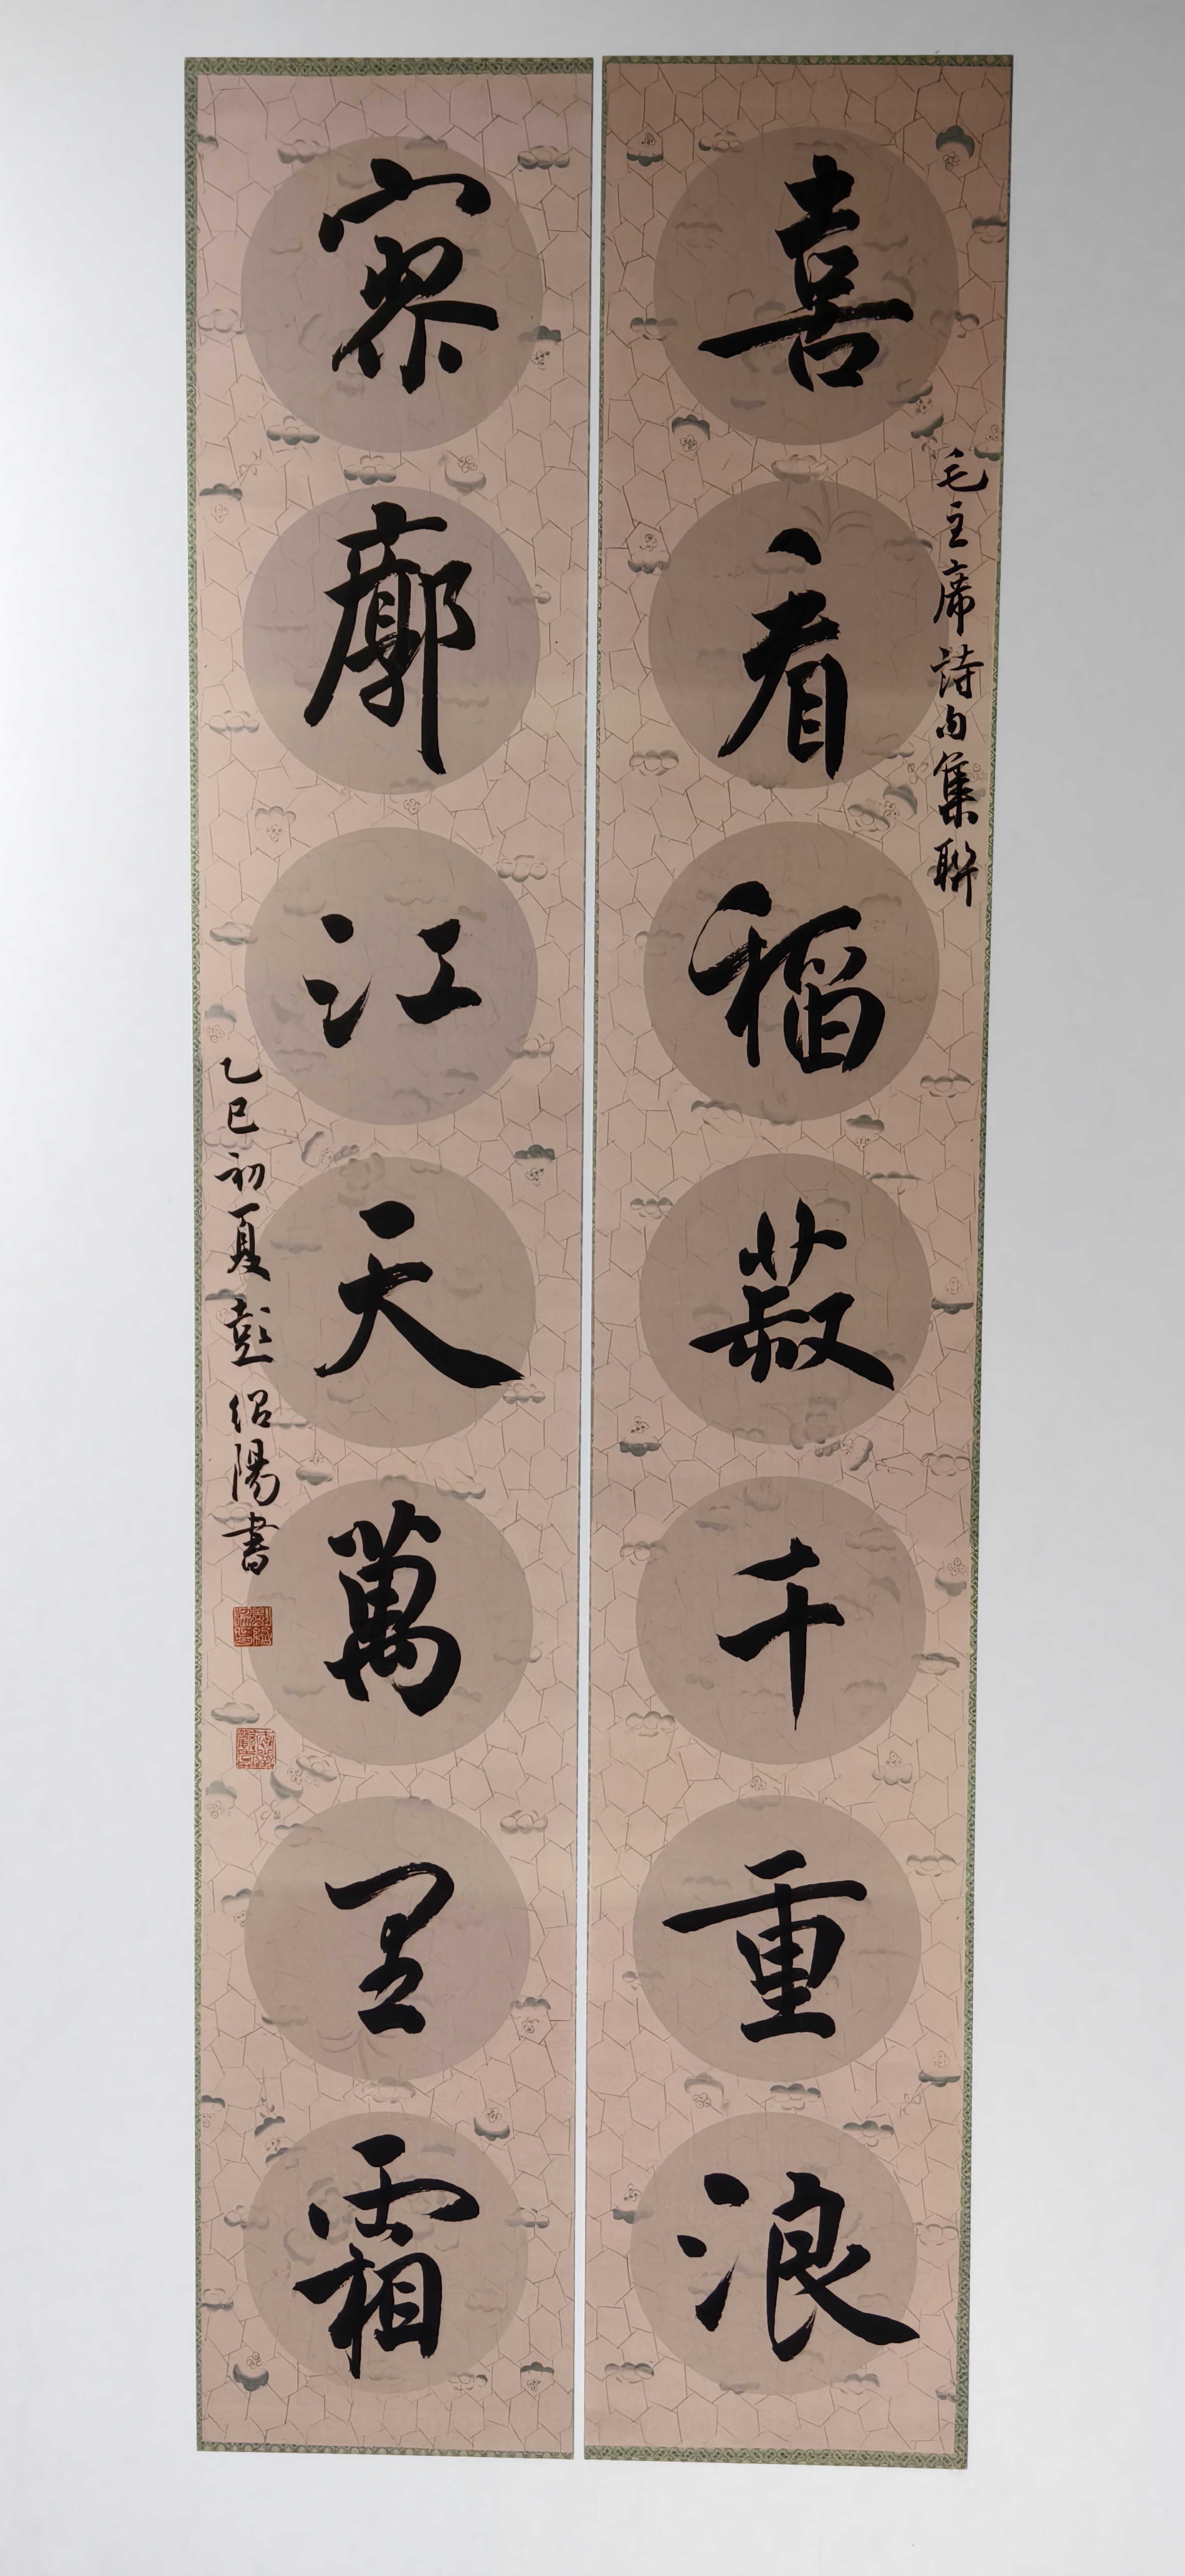 喜看稻菽千重浪
毛主席詩句集聯
寥廓江天萬里霜
乙巳初夏彭紹陽書